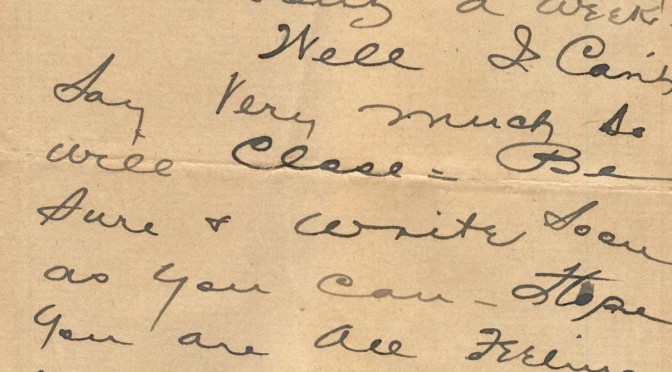 a week
Well I Can't
Say Very much so
will Close = Be
Sure & write Soon
as you can - Hope
you are All Feeling